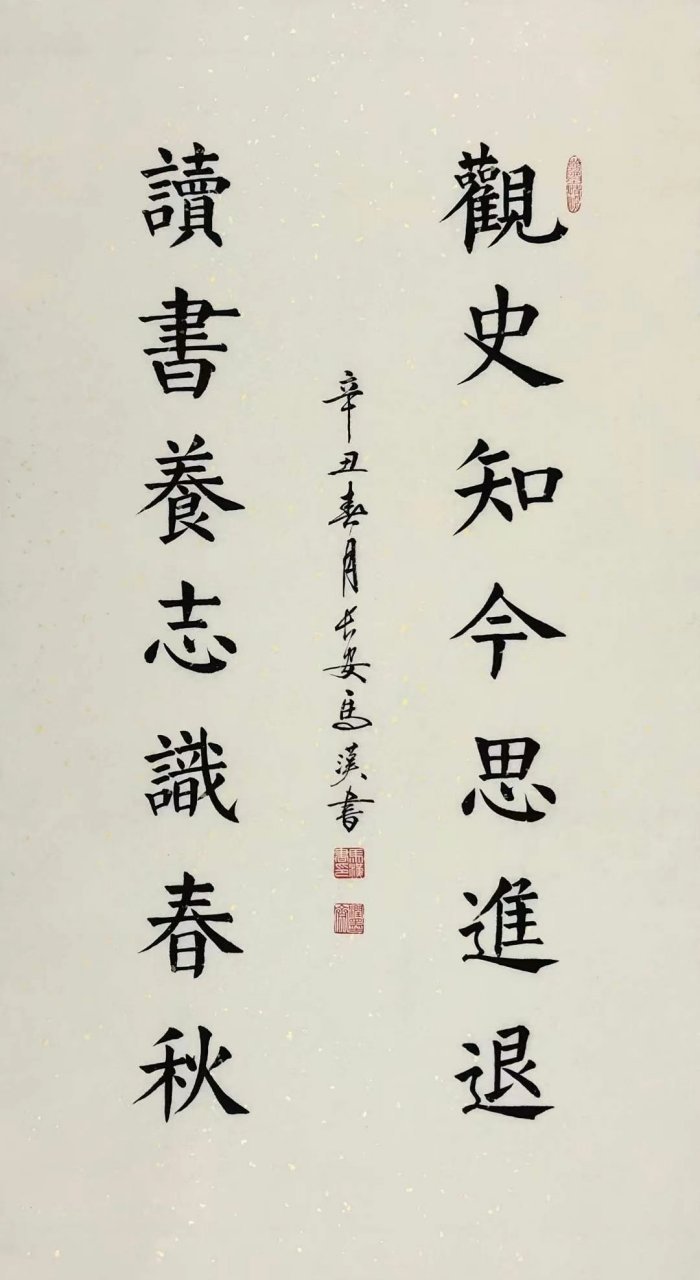 觀史知今思進退
辛丑春月長安馬漢書
讀書養志識春秋